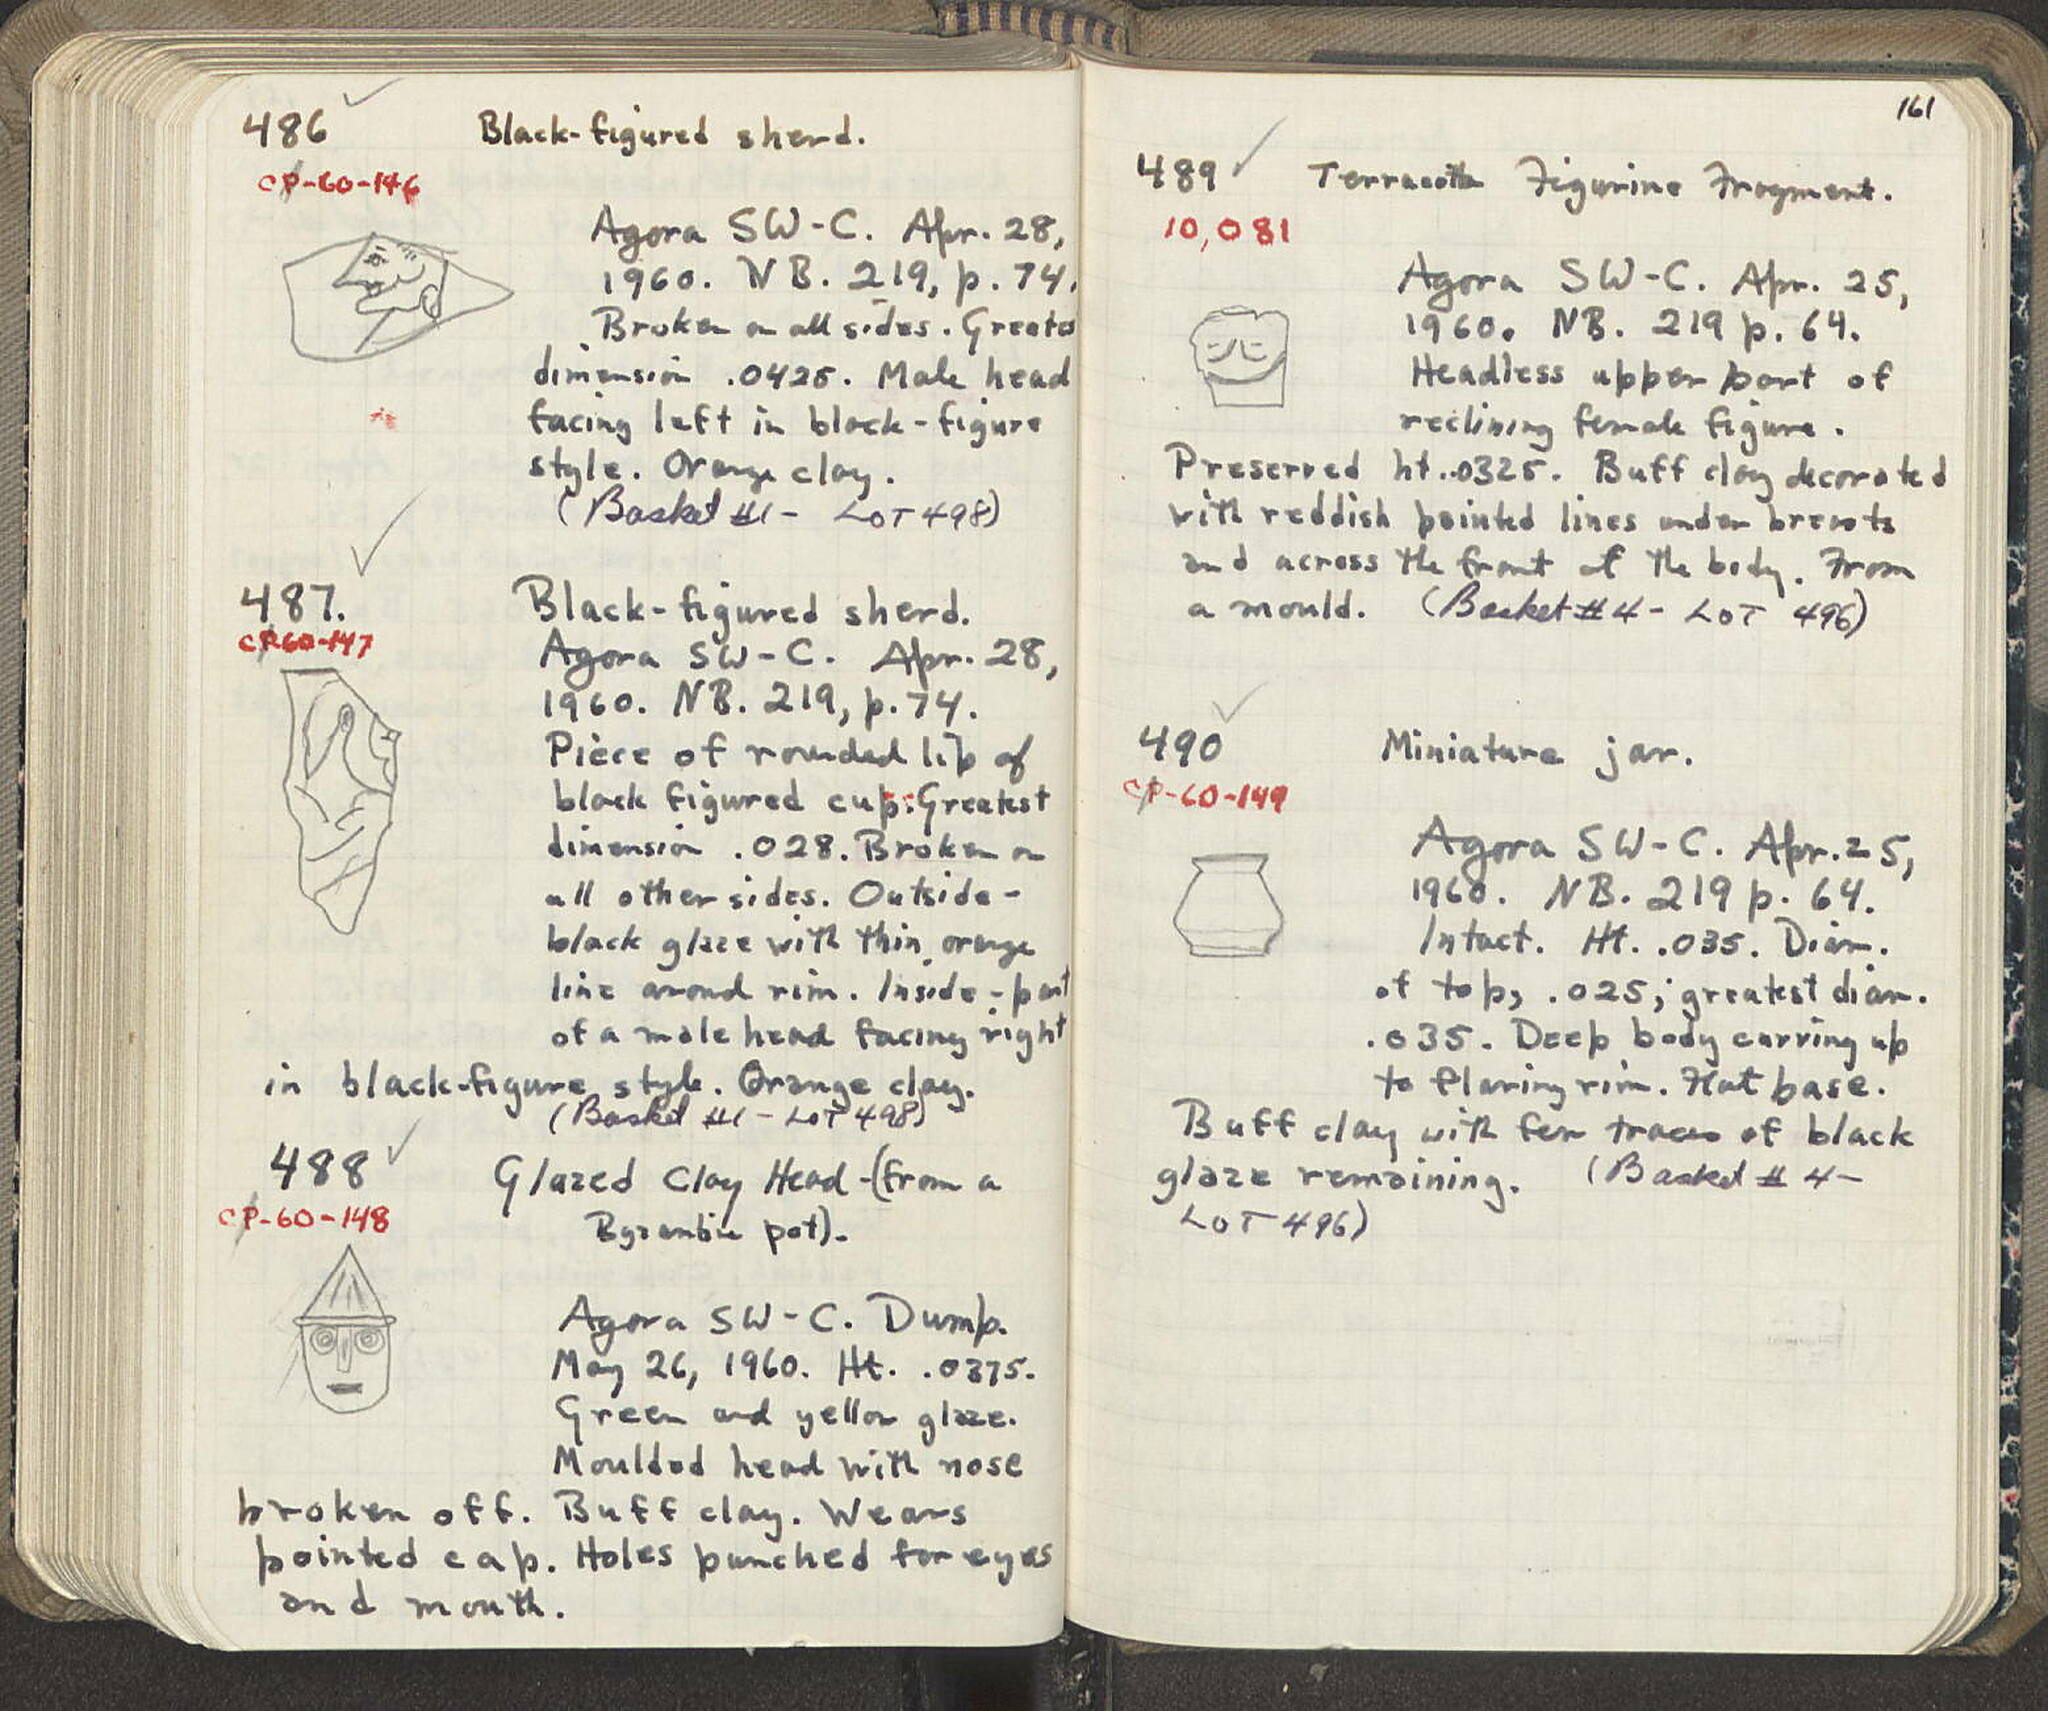 486
Black-figured sherd.
CP-60-146
Agora SW-C. Apr. 28,
1960. NB. 219, p. 74.
Broken on all sides. Greatest
dimension .0425. Male head
facing left in black-figure
style. Orange clay.
(Basket #1 - LOT 498)
487.
Black-figured sherd.
CP-60-147
Agora SW-C. Apr. 28,
1960. NB. 219, p. 74.
Piece of rounded lip of
black figured cup. Greatest
dimension .028. Broken on
all other sides. Outside -
black glaze with thin orange
line around rim. Inside - part
of a male head facing right
in black-figure style. Orange clay.
(Basket #1 - LOT 498)
488
Glazed Clay Head - (from a
Byzantine pot).
CP-60-148
Agora SW-C. Dump.
May 26, 1960. Ht. .0375.
Green and yellow glaze.
Moulded head with nose
broken off. Buff clay. Wears
pointed cap. Holes punched for eyes
and mouth.
161
489
Terracotta Figurine Fragment.
10,081
Agora SW-C. Apr. 25,
1960. NB. 219 p. 64.
Headless upper part of
reclining female figure.
Preserved ht. .0325. Buff clay decorated
with reddish painted lines under breasts
and across the front of the body. From
a mould. (Basket #4 - LOT 496)
490
Miniature jar.
CP-60-149
Agora SW-C. Apr. 25,
1960. NB. 219 p. 64.
Intact. Ht. .035. Diam.
of top, .025; greatest diam.
.035. Deep body curving up
to flaring rim. Flat base.
Buff clay with few traces of black
glaze remaining. (Basket # 4 -
LOT 496)